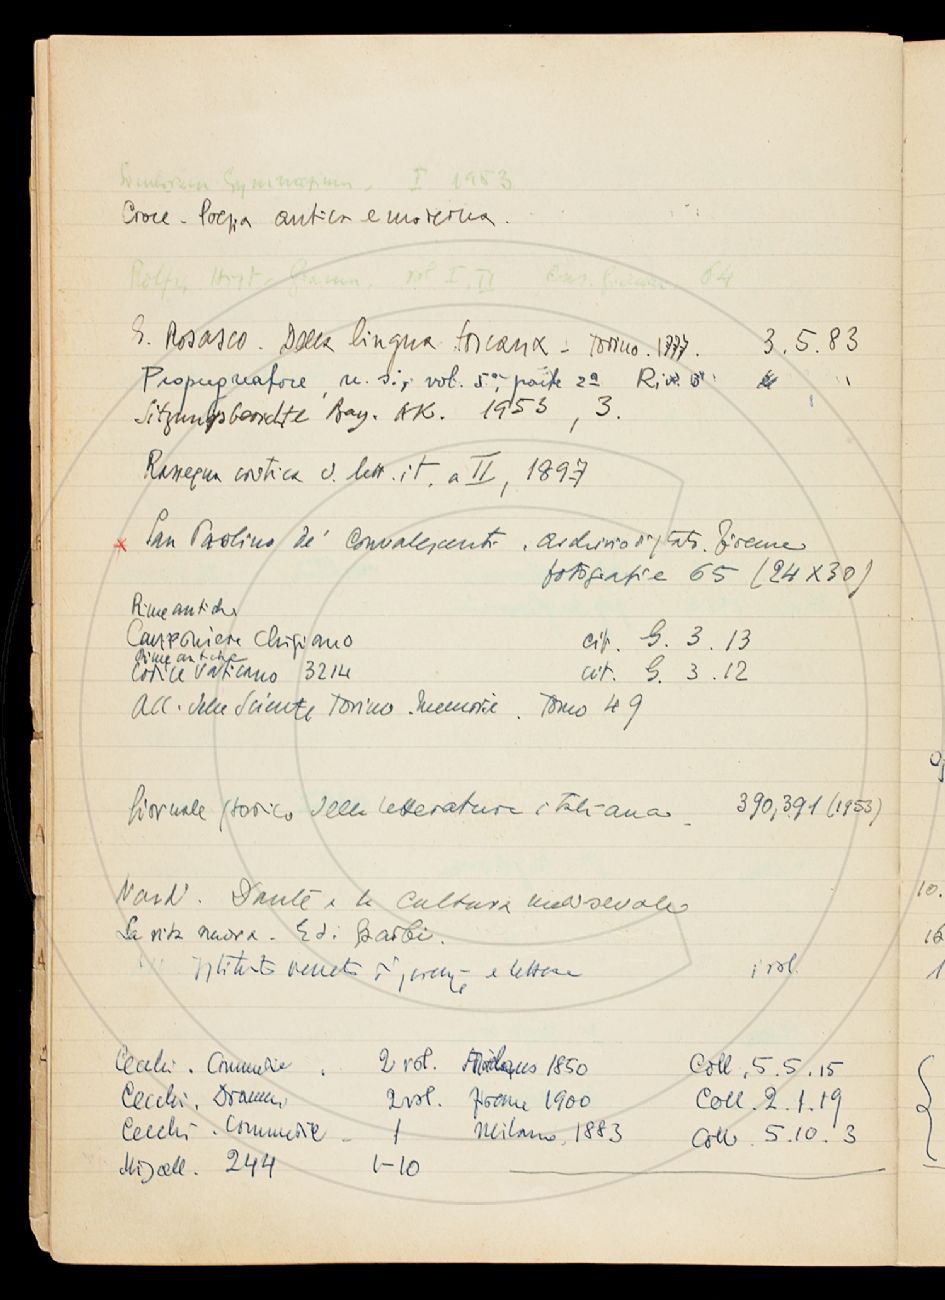 Gymnasium. I 1953
Croce - Poesia antica e moderna.
Hist. Gramm. vol I, II 64
G. Rosasco. Della lingua toscana - Torino. 1777. 3.5.83
Propugnatore, n. s., vol. 5°, parte 2ª Riv. "
Sitzungsberichte Bay. AK. 1953, 3.
Rassegna critica d. lett. it. a II, 1897
x San Paolino de' Convalescenti. Archivio di Stato. Firenze
fotografie 65 (24 x 30)
Rime antiche
Canzoniere Chigiano cit. G. 3. 13
Rime antiche
Codice Vaticano 3214 cit. G. 3. 12
Acc. delle Scienze Torino. Memorie. Tomo 49
Giornale storico della letteratura italiana - 390, 391 (1953)
Nardi. Dante e la cultura medievale
La vita nuova - Ed.
Istituto veneto di scienze e lettere 1 vol.
Cecchi. Commedie. 2 vol. Milano 1850 Coll. 5. 5. 15
Cecchi. Drammi 2 vol. Firenze 1900 Coll. 2. 1. 19
Cecchi. Commedie - 1 Milano. 1883 Coll. 5. 10. 3
Miscell. 244 1-10